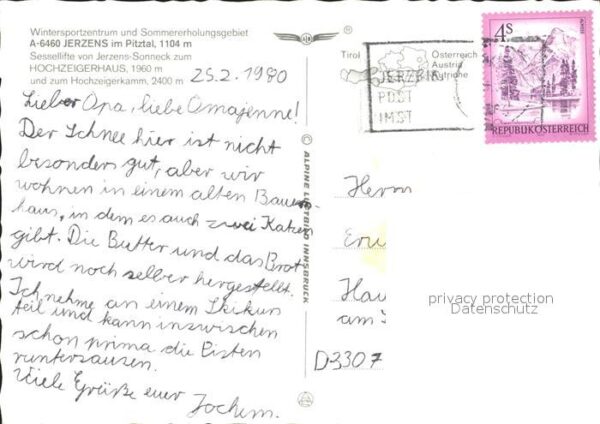 Wintersportzentrum und Sommererholungsgebiet
A-6460 JERZENS im Pitztal, 1104 m
Sessellifte von Jerzens-Sonneck zum
HOCHZEIGERHAUS, 1960 m
und zum Hochzeigerkamm, 2400 m
25.2.1980
Lieber Opa, liebe Omajenne!
Der Schnee hier ist nicht
besonders gut, aber wir
wohnen in einem alten Bauern-
haus, in dem es auch zwei Katzen
gibt. Die Butter und das Brot
wird noch selber hergestellt.
Ich nehme an einem Skikurs
teil und kann inzwischen
schon prima die Pisten
runtersausen.
Viele Grüße euer Jochem.
© ALPINE LUFTBILD INNSBRUCK
Tirol
Österreich
Austria
Autriche
JERZENS
POST
IMST
4S
REPUBLIK ÖSTERREICH
Herrn
Hau
am
D3307
privacy protection
Datenschutz